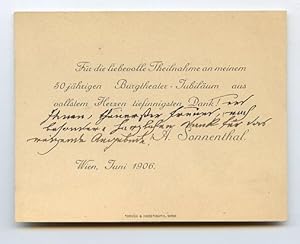 Für die liebevolle Theilnahme an meinem
50 jährigen Burgtheater-Jubiläum aus
vollstem Herzen tiefinnigsten Dank!
Ihnen, theuerster Freund, noch
besonders herzlichen Dank für das
A. Sonnenthal.
Wien, Juni 1906.